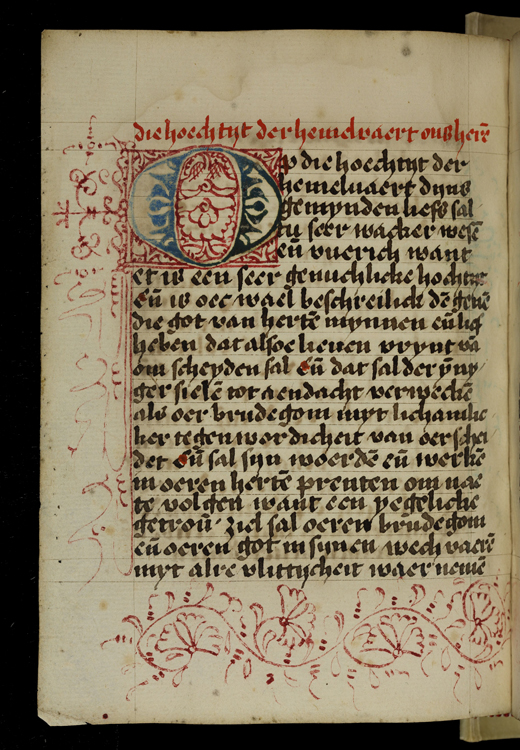 die hoechtyt der hemelvaert ons herẽ
Op die hoechtyt der
hemelvaert dyns
gemynden liefs sal
tu seer wacker wesẽ
eñ vuerich want
et is een seer genuchlicke hochtyt
Eñ is oec wael beschreilick dẽ genẽ
die got van hertẽ mynnen eñ lief
heben dat alsoe lieven vrynt vã
om scheyden sal Eñ dat sal der ÿnny
ger sielẽ tot aendacht verweckẽ
als oer brudegom myt lichamlic
ker tegenwordicheit van oer schei
det Eñ sal syn woerdẽ eñ werkẽ
in oeren hertẽ prenten om nae
te volgen want een yegeliche
getrou ziel sal oeren brudegom
eñ oeren got in synen wech vaerẽ
myt alre vlittycheit waer nemẽ